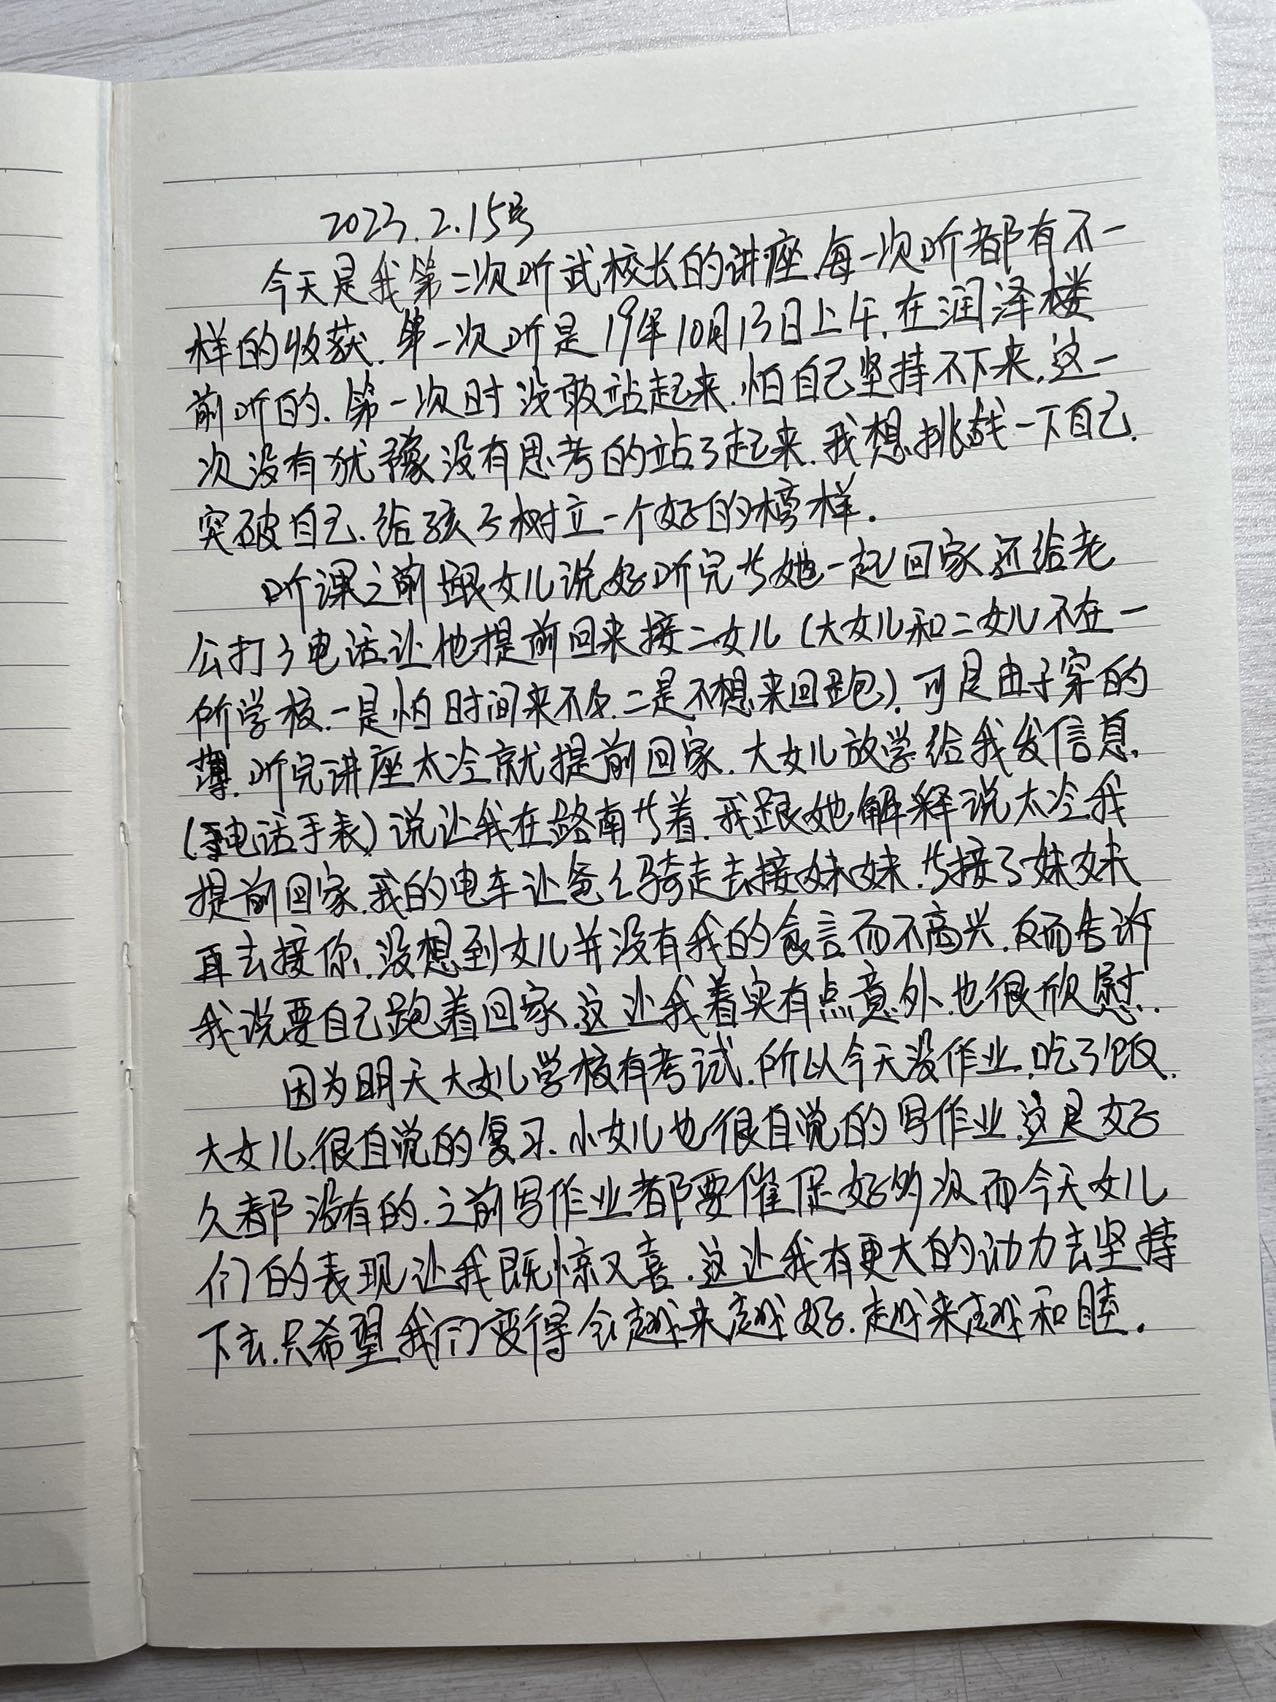 2023.2.15号
今天是我第二次听武校长的讲座.每一次听都有不一
样的收获.第一次听是19年10月13日上午.在润泽楼
前听的.第一次时没敢站起来.怕自己坚持不下来.这一
次没有犹豫没有思考的站了起来.我想挑战一下自己.
突破自己.给孩子树立一个好的榜样.
听课之前跟女儿说好听完等她一起回家.还给老
公打了电话让他提前回来接二女儿(大女儿和二女儿不在一
所学校.一是怕时间来不及.二是不想来回跑).可是由于穿的
薄.听完讲座太冷就提前回家.大女儿放学给我发信息.
(电话手表)说让我在路南等着.我跟她解释说太冷我
提前回家.我的电车让爸爸骑走去接妹妹.等接了妹妹
再去接你.没想到女儿并没有我的食言而不高兴.反而告诉
我说要自己跑着回家.这让我着实有点意外.也很欣慰.
因为明天大女儿学校有考试.所以今天没作业.吃了饭.
大女儿很自觉的复习.小女儿也很自觉的写作业.这是好
久都没有的.之前写作业都要催促好多次而今天女儿
们的表现让我既惊又喜.这让我有更大的动力去坚持
下去.只希望我们变得会越来越好.越来越和睦.